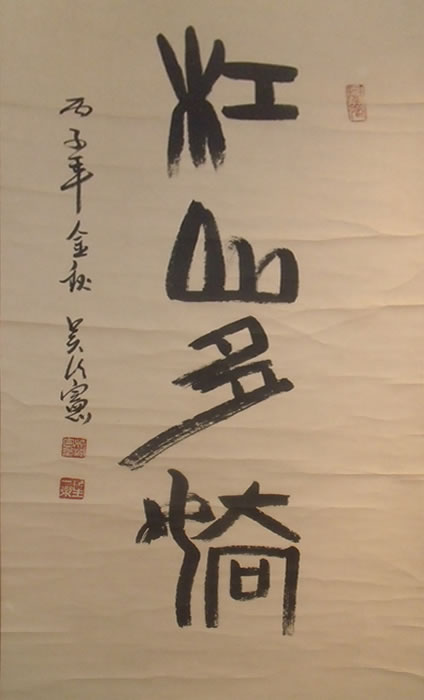 江山多嬌
丙子年金秋 吴憲